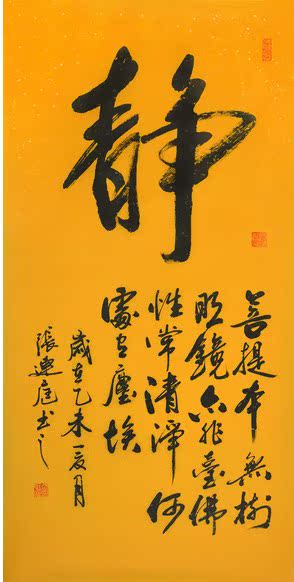 静
菩提本無樹
明鏡亦非臺佛
性常清淨何
處有塵埃
歲在乙未夏月
張連庭書之